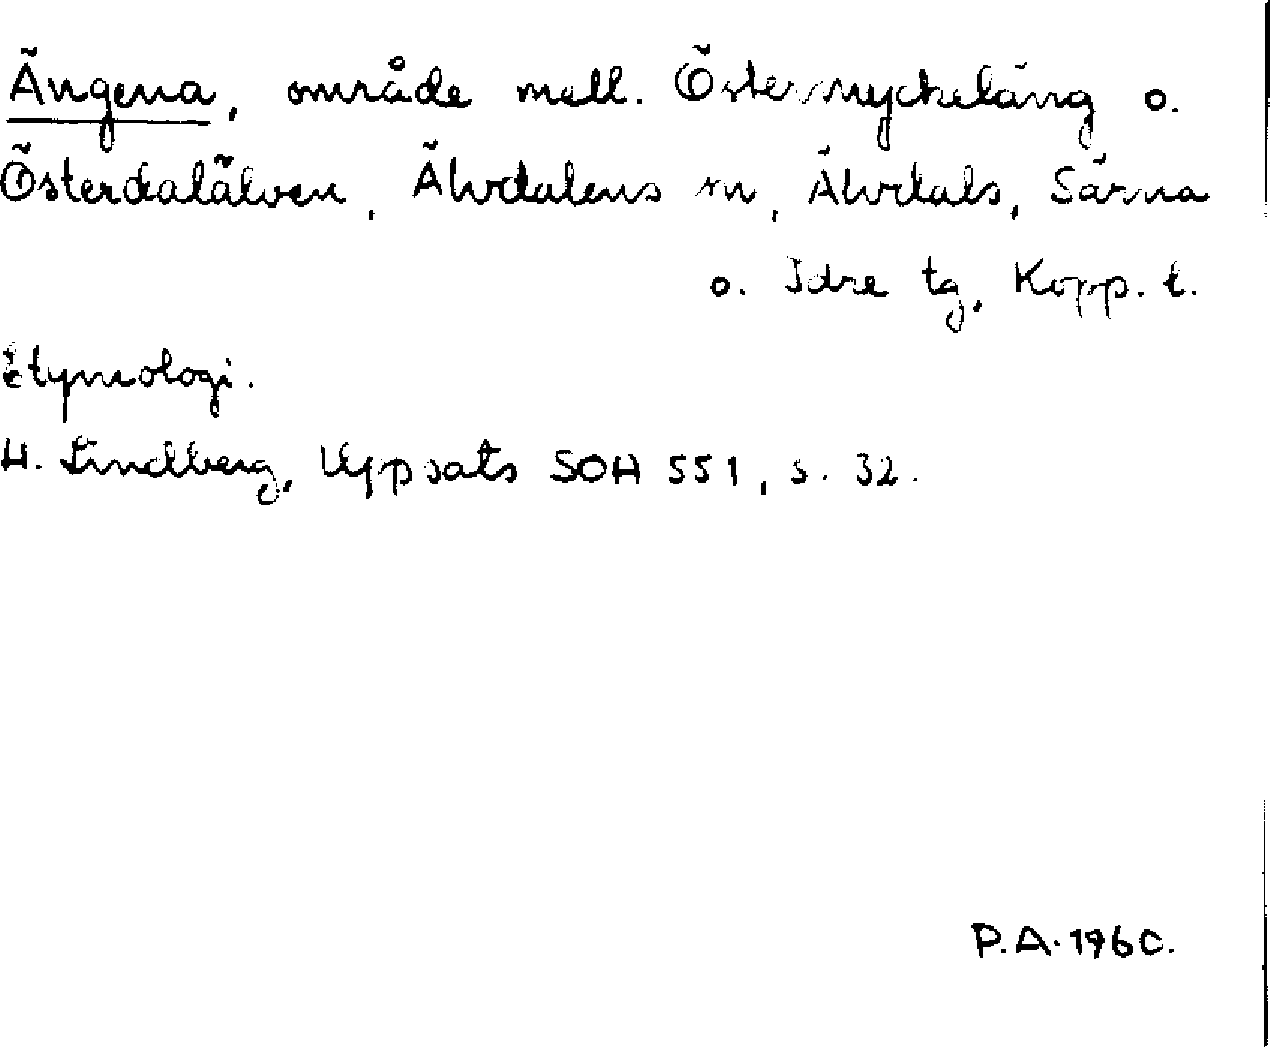 Ängena, område mell. Östermyckeläng o.
Österdalälven, Älvdalens sn, Älvdals, Särna
o. Idre tg, Kopp. l.
Etymologi.
H. Lindberg, Uppsats SOH 551, s. 32.
P.A. 1960.